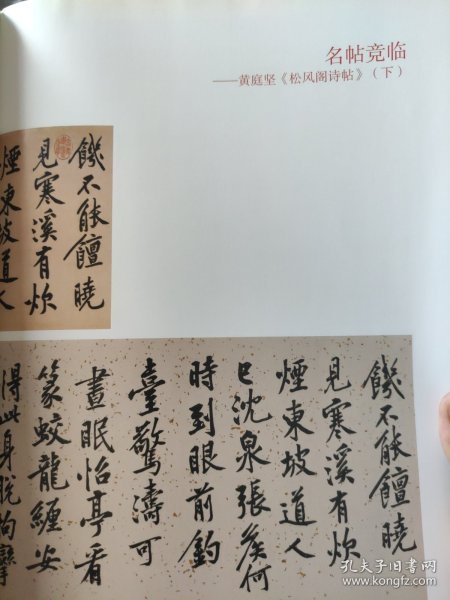 名帖竞临
——黄庭坚《松风阁诗帖》（下）
饑不能饘曉
見寒溪有炊
煙東坡道人
饑不能饘曉
見寒溪有炊
煙東坡道人
已沈泉張矦何
時到眼前釣
臺驚濤可
晝眠怡亭看
篆蛟龍纏安
得此身脫拘攣
孔夫子旧书网
www.kongfz.com